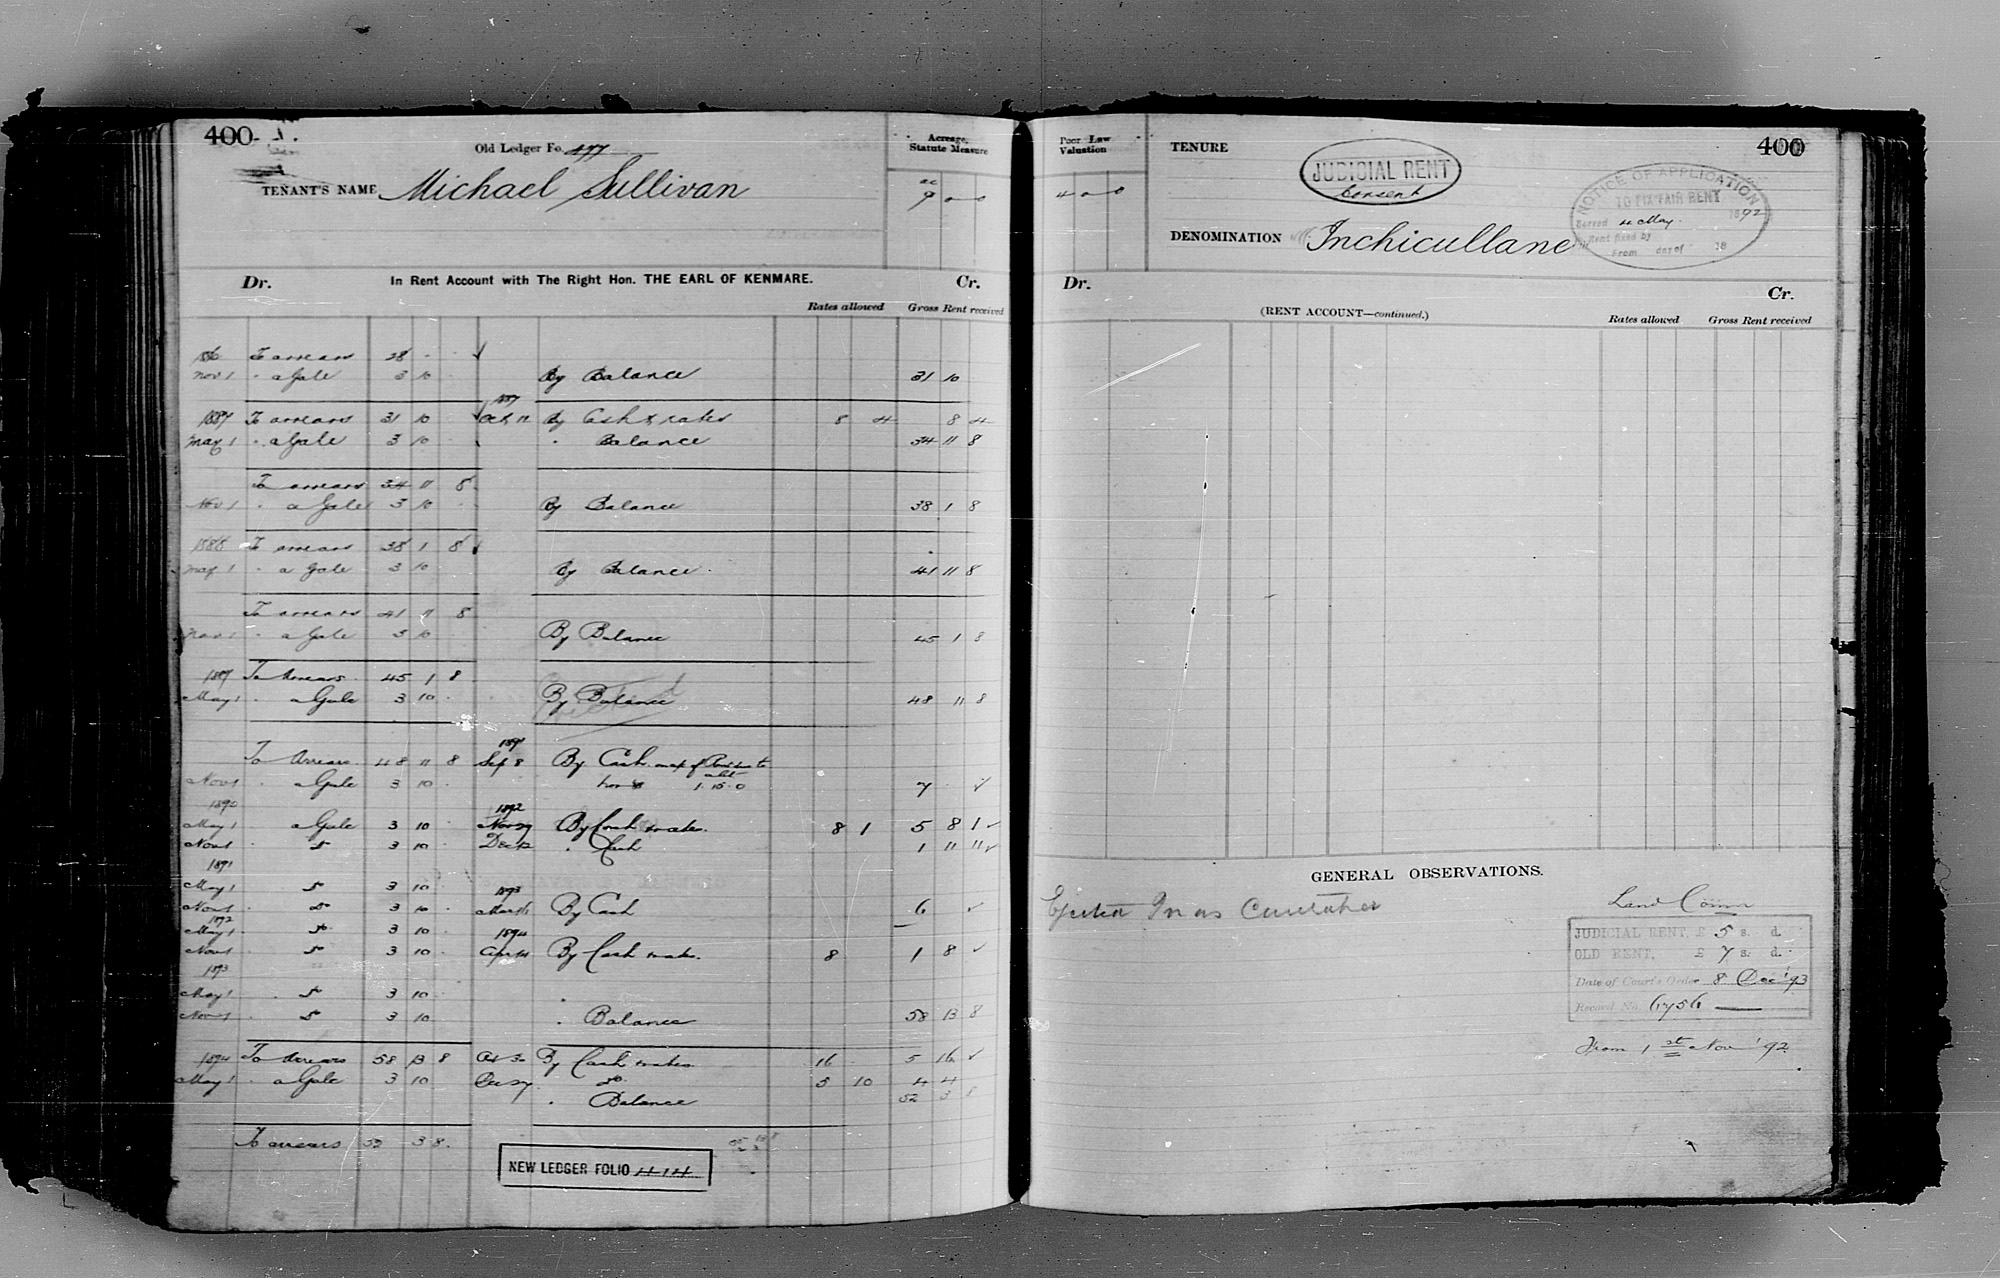 400
Old Ledger Fo. 477
Acreage,
Statute Measure
TENANT'S NAME Michael Sullivan
ac
9 0 0
Dr. In Rent Account with The Right Hon. THE EARL OF KENMARE. Cr.
Rates allowed Gross Rent received
1886 To arrears 28 . .
Nov 1 " a Gale 3 10 By Balance 31 10
1887
1887 To arrears 31 10 Oct 12 By Cash & rates 8 4 8 4
May 1 " a Gale 3 10 " Balance 34 11 8
To arrears 34 11 8
Nov 1 " a Gale 3 10 By Balance 38 1 8
1888 To arrears 38 1 8
May 1 " a Gale 3 10 By Balance 41 11 8
To arrears 41 11 8
Nov 1 " a Gale 3 10 By Balance 45 1 8
1889 To Arrears 45 1 8
May 1 " a Gale 3 10 By Balance 48 11 8
To Arrears 48 11 8 Sep 8 By Cash
Nov 1 " a Gale 3 10 1 15 0 7
1890
1892
May 1 a Gale 3 10 Nov 29 By Cash & rates. 8 1 5 8 1
Nov 1 " Do 3 10 Dec 12 " Cash 1 11 11
1891
May 1 Do 3 10
1893
Nov 1 " Do 3 10 Mar 16 By Cash 6
1892
May 1 Do 3 10
1894
Nov 1 Do 3 10 Apr 14 By Cash & rates. 8 1 8
1893
May 1 " Do 3 10
Nov 1 " Do 3 10 " Balance 58 13 8
1894 To Arrears 58 13 8 Oct 30 By Cash & rates 16 5 16
May 1 " a Gale 3 10 Dec 27 Do 5 10 4 4
" Balance 52 3 8
To arrears 52 3 8
NEW LEDGER FOLIO 414
Poor Law
Valuation
4 0 0
TENURE
JUDICIAL RENT
Consent
400
NOTICE OF APPLICATION
TO FIX FAIR RENT
Served 11 May 1892
Rent fixed by
From day of 18
DENOMINATION Inchicullane
Dr. Cr.
(RENT ACCOUNT—continued.)
Rates allowed Gross Rent received
GENERAL OBSERVATIONS.
Ejected In as Caretaker
Land Comn
JUDICIAL RENT, £ 5 s. d.
OLD RENT, £ 7 s. d.
Date of Court's Order 8 Dec '93
Record No. 6756
From 1st Nov '92